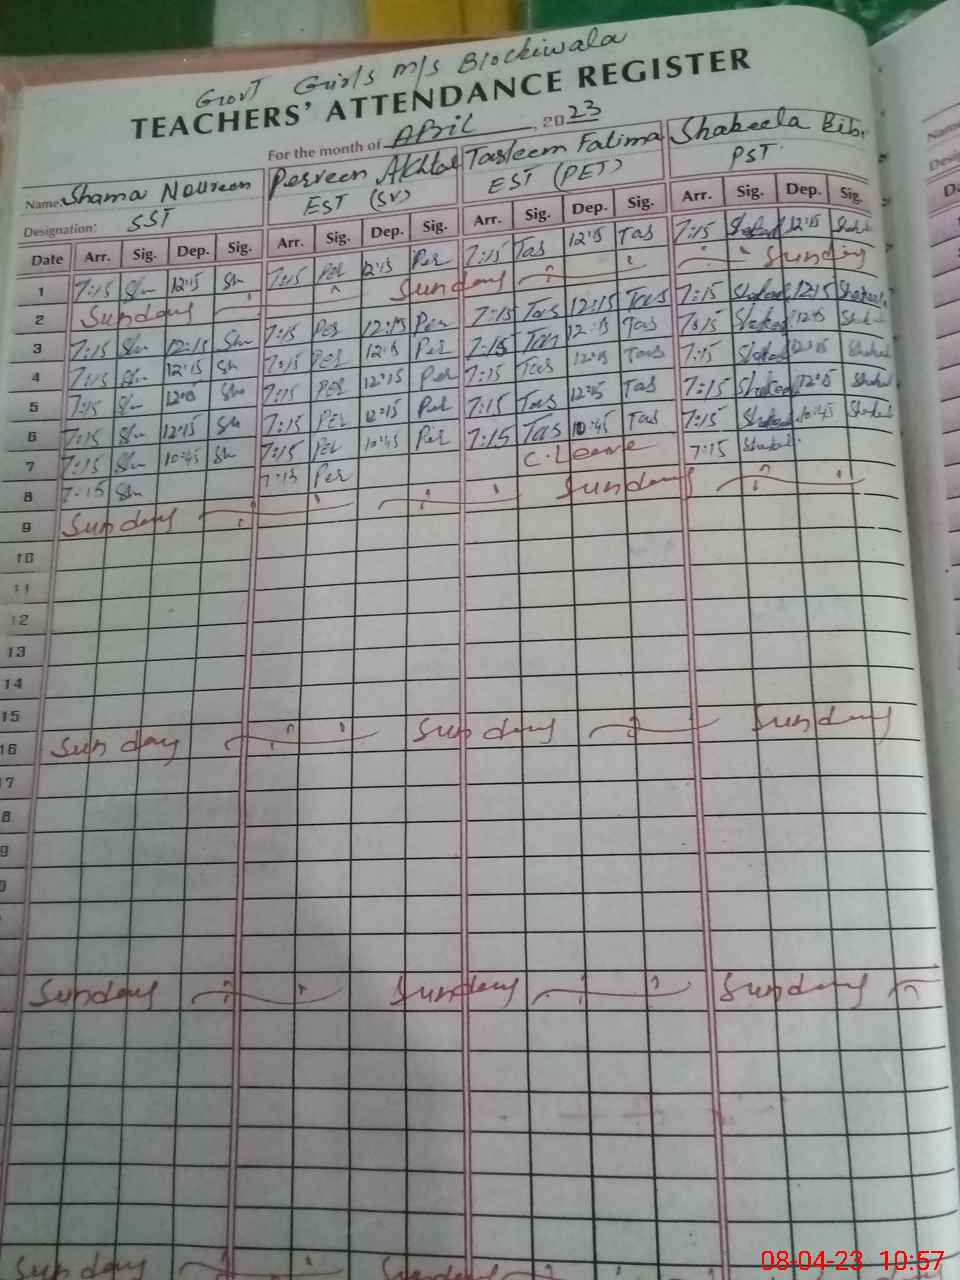 Govt Girls M/S Blockiwala
TEACHERS' ATTENDANCE REGISTER
For the month of April, 2023
Name: Shama Noureen Perveen Akhtar Tasleem Fatima Shakeela Bibi
Designation: SST EST (SV) EST (PET) PST
Date Arr. Sig. Dep. Sig. Arr. Sig. Dep. Sig. Arr. Sig. Dep. Sig. Arr. Sig. Dep. Sig.
1 7:15 Sh 12:15 Sh 7:15 Per 12:15 Per 7:15 Tas 12:15 Tas 7:15 Shakeel 12:15 Shakeel
2 Sunday Sunday Sunday
3 7:15 Sh 12:15 Sh 7:15 Per 12:15 Per 7:15 Tas 12:15 Tas 7:15 Shakeel 12:15 Shakeela
4 7:15 Sh 12:15 Sh 7:15 Per 12:15 Per 7:15 Tas 12:15 Tas 7:15 Shakeel 12:15 Shakeel
5 7:15 Sh 12:15 Sh 7:15 Per 12:15 Per 7:15 Tas 12:15 Tas 7:15 Shakeel 12:15 Shakeel
6 7:15 Sh 12:15 Sh 7:15 Per 12:15 Per 7:15 Tas 12:15 Tas 7:15 Shakeel 12:15 Shakeel
7 7:15 Sh 10:45 Sh 7:15 Per 10:45 Per 7:15 Tas 10:45 Tas 7:15 Shakeel 10:45 Shakeel
8 7:15 Sh 7:15 Per C. Leave 7:15 Shakeel
9 Sunday Sunday
10
11
12
13
14
15
16 Sunday Sunday Sunday
17
8
9
0
Sunday Sunday Sunday
Sunday Sunday
08-04-23 10:57